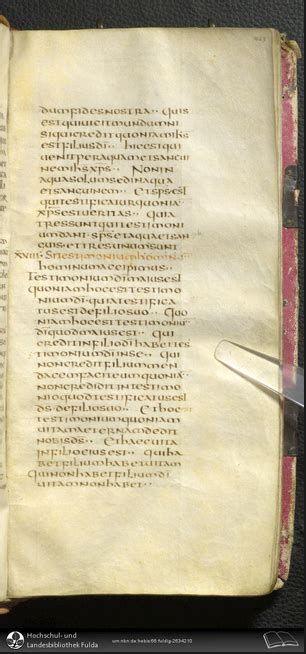 dum fides nostra·· Quis
est qui uicit mundum ni
si qui credit quoniam ihs
est filius dī·· hic est qui
uenit per aquam et sangui
nem ihs xps·· Non in
aqua solum sed in aqua
et sanguine·· Et sps est
qui testificatur quonia
xps est ueritas·· Quia
tres sunt qui testimoni
um dant sps et aqua et san
guis et tres unum sunt
XVIII· Si testimonium hominū
hominum accipimus··
Testimonium dī maius est
quoniam hoc est testimo
nium dī quia testifica
tus est de filio suo·· Quo
niam hoc est testimonium
dī quod maius est·· Qui
credit in filio dī habet tes
timonium dī in se·· Qui
non credit filium men
dacem facit eum quonia
non credidit in testimo
nio quod testificatus est
ds de filio suo·· Et hoc est
testimonium quoniam
uitam aeternam dedit
nobis ds·· Et haec uita
in filio eius est·· Qui ha
bet filium habet uitam
Qui non habet filium dī
uitam non habet··
Hochschul- und
Landesbibliothek Fulda